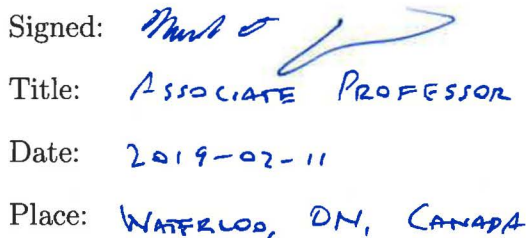 Signed:
Title: ASSOCIATE PROFESSOR
Date: 2019-02-11
Place: WATERLOO, ON, CANADA